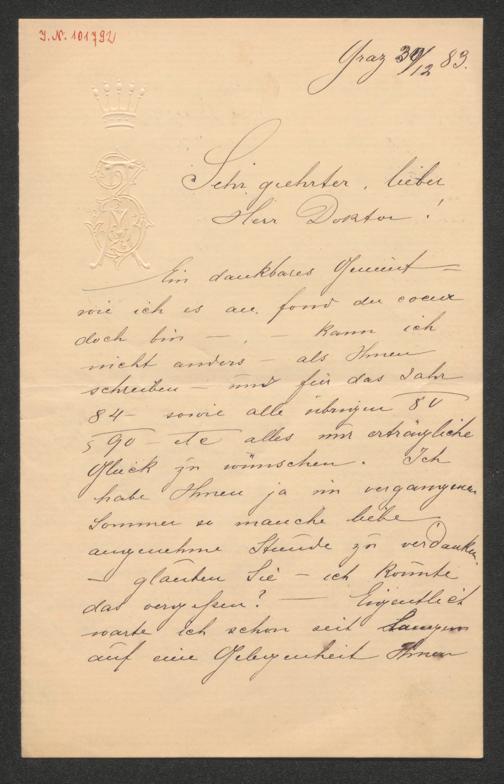 J. N. 101792
Graz 30/12 83.
Sehr geehrter, lieber
Herr Doktor!
Ein dankbares Gemüt =
wie ich es au fond du coeur
doch bin — , — kann ich
nicht anders — als Ihnen
schreiben — und für das Jahr
84 — sowie alle übrigen 80
90 — etc alles nur erträgliche
Glück zu wünschen. Ich
habe Ihnen ja im vergangenen
Sommer so manche liebe
angenehme Stunde zu verdanken.
— glauben Sie — ich könnte
das vergeßen? — Eigentlich
warte ich schon seit
auf eine Gelegenheit Ihnen